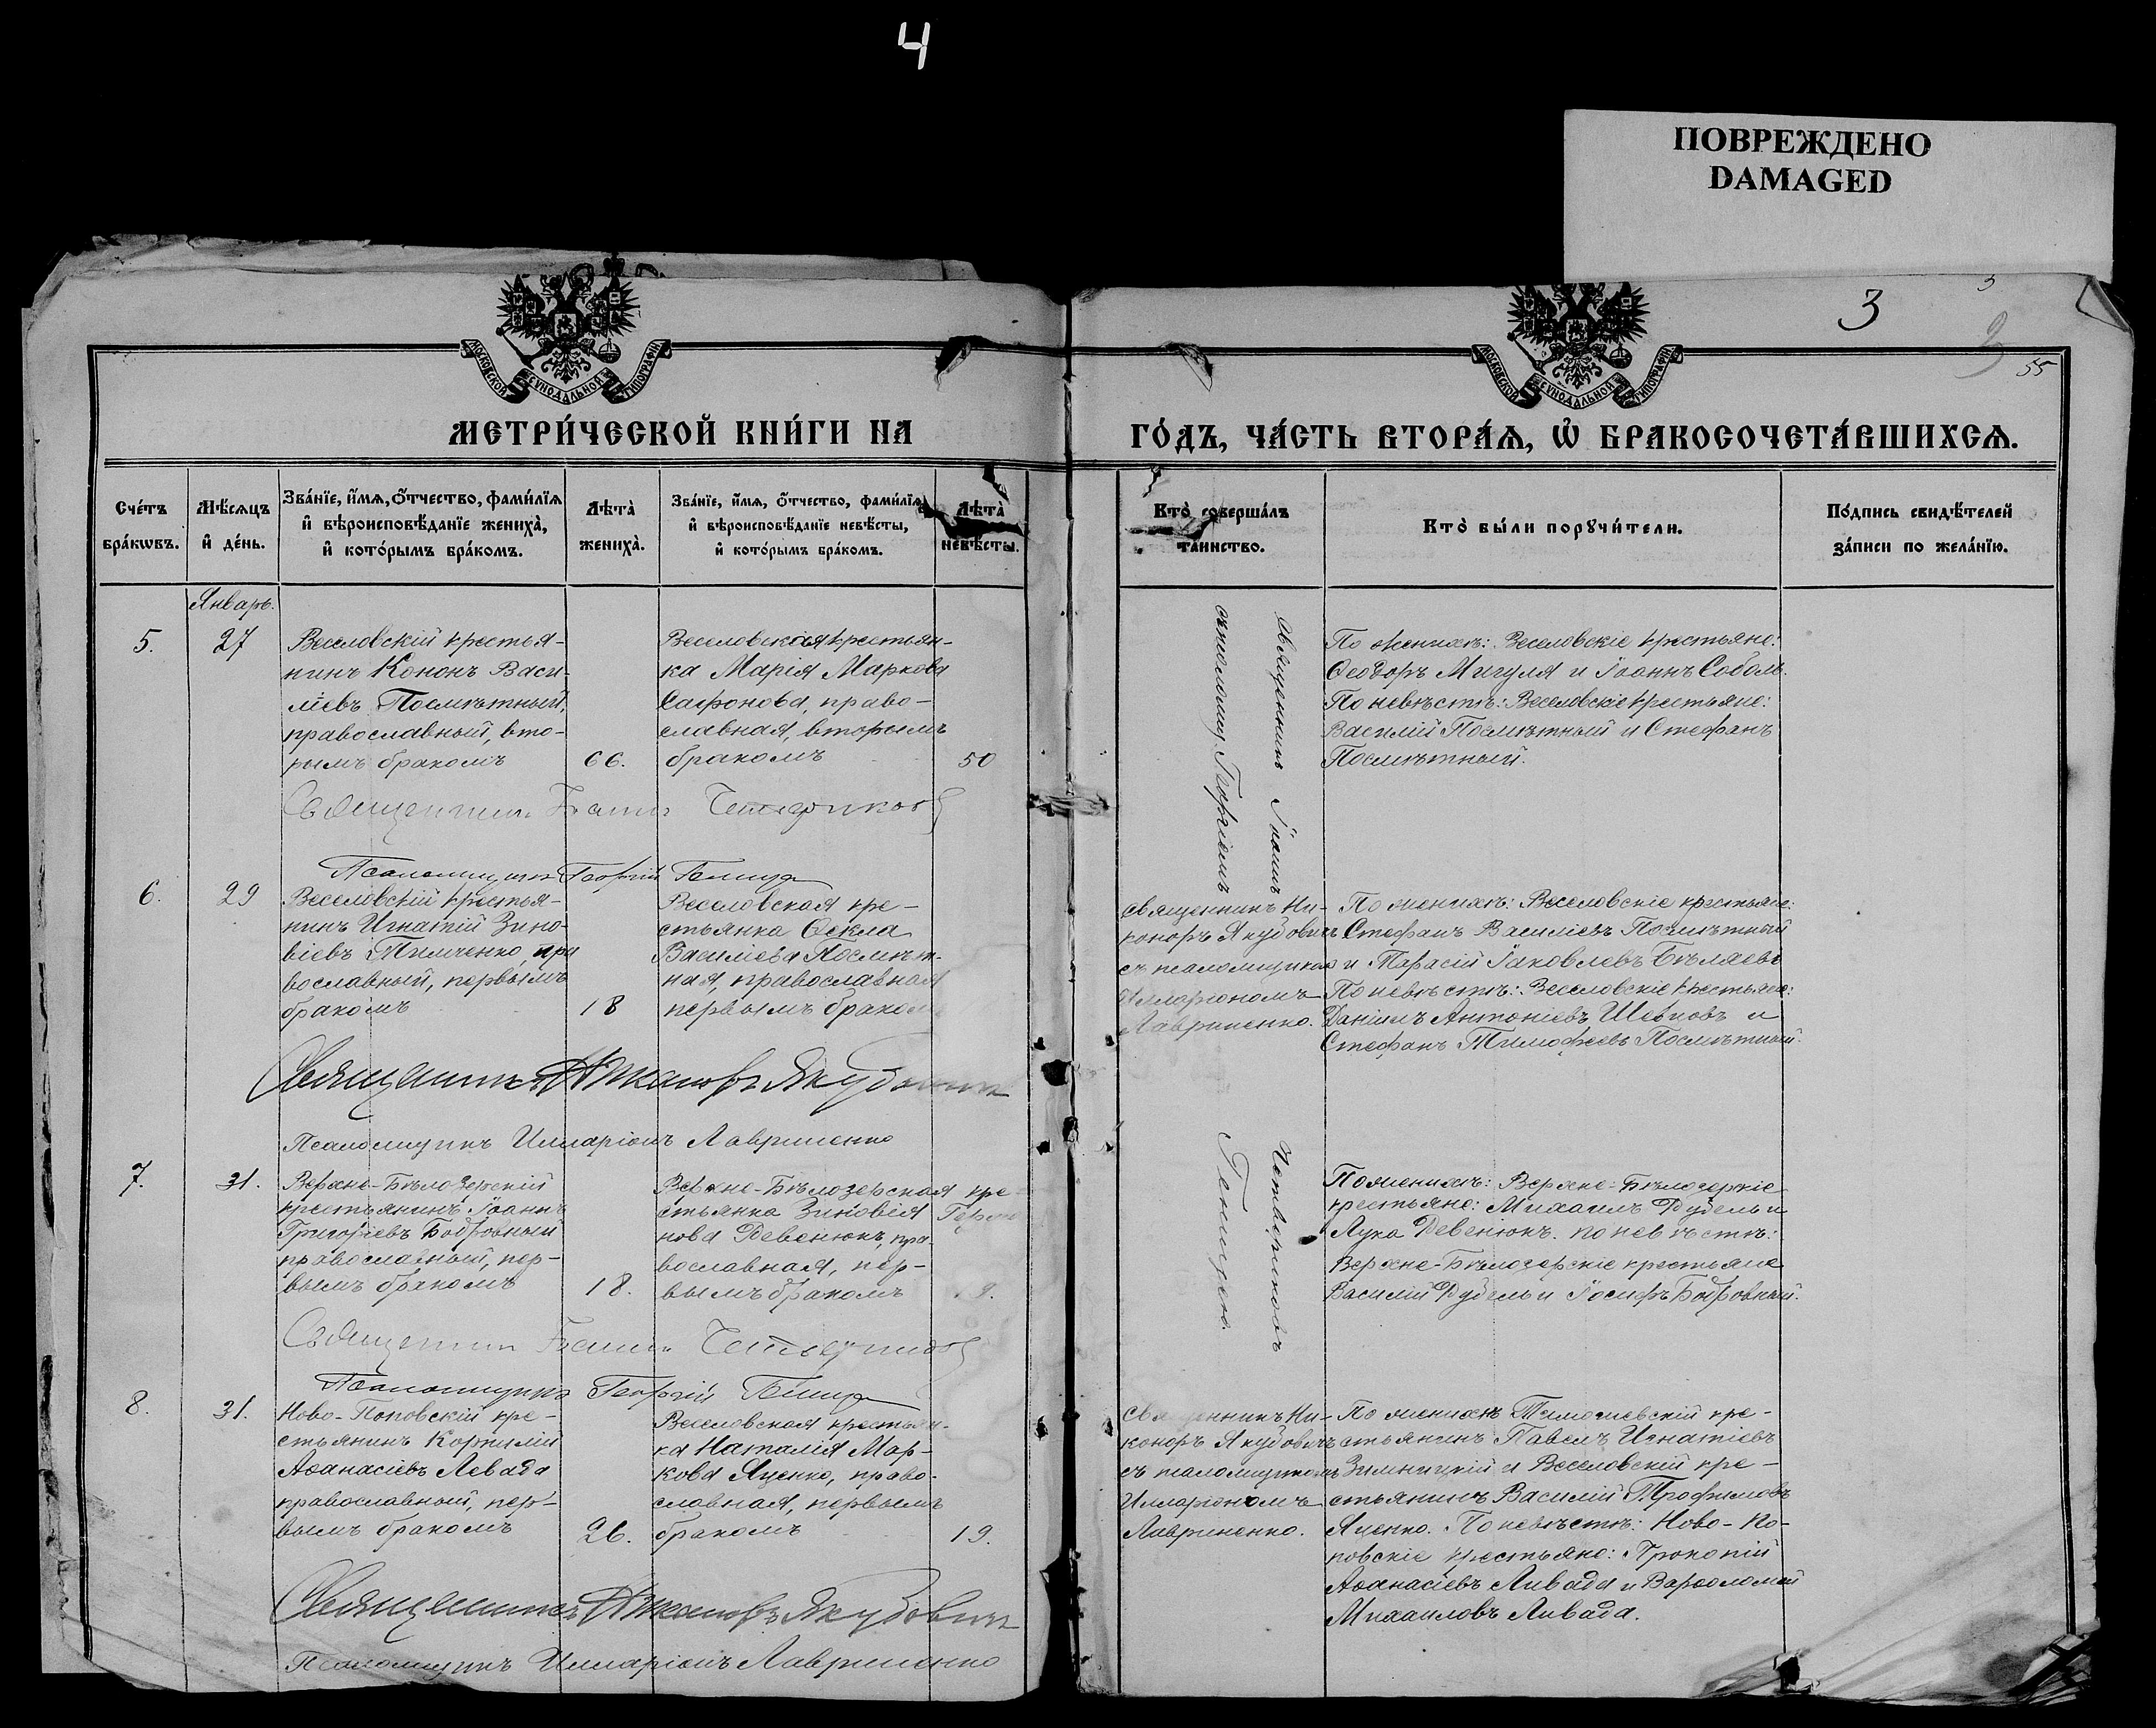 4
ПОВРЕЖДЕНО
DAMAGED
3
3
55
МОСКОВСКОЙ СѴНОДАЛЬНОЙ ТИПОГРАФІИ
МОСКОВСКОЙ СѴНОДАЛЬНОЙ ТИПОГРАФІИ
МЕТРИ́ЧЕСКОЙ КНИ́ГИ НА
ГО́ДЪ, ЧА́СТЬ ВТОРА́Ѧ, Ѽ БРАКОСОЧЕТА́ВШИХСѦ.
Сче́тъ
бра́кѡвъ.
Мѣ́сѧцъ
и҆ де́нь.
Зва́нїе, и҆́мѧ, ѻ҆́тчество, фами́лїѧ
и҆ вѣроисповѣ́данїе жениха̀,
и҆ кото́рымъ бра́комъ.
Лѣта̀
жениха̀.
Зва́нїе, и҆́мѧ, ѻ҆́тчество, фами́лїѧ
и҆ вѣроисповѣ́данїе невѣ́сты,
и҆ кото́рымъ бра́комъ.
Лѣта̀
невѣ́сты.
Кто̀ соверша́лъ
та́инство.
Кто̀ бы́ли порꙋчи́тели.
По́дпись свидѣ́телей
за́писи по жела́нїю.
Январь.
5.
27
Веселовскій крестья-
нинъ Кононъ Васи-
ліевъ Посмѣтный,
православный, вто-
рымъ бракомъ
66.
Веселовская крестьян-
ка Марія Маркова
Сафонова, право-
славная, вторымъ
бракомъ
50
Священникъ Іоаннъ
съ псаломщ. Георгіемъ
По женихѣ: Веселовскіе крестьяне:
Ѳеодоръ Мигуля и Іоаннъ Соболь.
По невѣстѣ: Веселовскіе крестьяне:
Василій Посмѣтный и Стефанъ
Посмѣтный.
Священникъ Іоаннъ Четвериковъ
Псаломщикъ Георгій
6.
29
Веселовскій крестья-
нинъ Игнатій Зино-
віевъ Тимченко, пра
вославный, первымъ
бракомъ
18
Веселовская кре-
стьянка Ѳекла
Василіева Посмѣт-
ная, православная
первымъ браком
Священникъ Ни-
коноръ Якубовичъ
съ псаломщикомъ
Илларіономъ
Лавриненко.
По женихѣ: Веселовскіе крестьяне:
Стефанъ Василіевъ Посмѣтный
и Тарасій Іаковлевъ Бѣляевъ
По невѣстѣ: Веселовскіе крестьяне:
Даніилъ Антоніевъ Шевцовъ и
Стефанъ Тимофеевъ Посмѣтный.
Священникъ Никаноръ Якубовичъ
Псаломщикъ Илларіонъ Лавриненко
7.
31.
Верхне-Бѣлозерскій
крестьянинъ Іоаннъ
Григоріевъ Бобровный
православный, пер-
вымъ бракомъ
18.
Верхне-Бѣлозерская кре
стьянка Зиновія
нова Ревенюкъ, пра-
вославная, пер-
вымъ бракомъ
9.
Четвериковъ
По женихѣ: Верхне-Бѣлозерскіе
крестьяне: Михаилъ Рудель и
Лука Ревенюкъ. по невѣстѣ:
Верхне-Бѣлозерскіе крестьяне
Василій Рудель и Іосифъ Бобровный.
Священникъ Іоаннъ Четвериковъ
Псаломщикъ Георгій
8.
31.
Ново-Поповскій кре-
стьянинъ Корнилій
Аѳанасіевъ Левада
православный, пер-
вымъ бракомъ
26.
Веселовская крестьян-
ка Наталія Мар-
кова Яценко, право-
славная, первымъ
бракомъ
19.
Священникъ Ни-
коноръ Якубовичъ
съ псаломщикомъ
Илларіономъ
Лавриненко.
По женихѣ Тимошевскій кре-
стьянинъ Павелъ Игнатіевъ
Зимницкій и Веселовскій кре-
стьянинъ Василій Трофимовъ
Яценко. По невѣстѣ: Ново-По-
повскіе крестьяне: Прокопій
Аѳанасіевъ Ливада и Варѳоломей
Михаиловъ Ливада.
Священникъ Никаноръ Якубовичъ
Псаломщикъ Илларіонъ Лавриненко